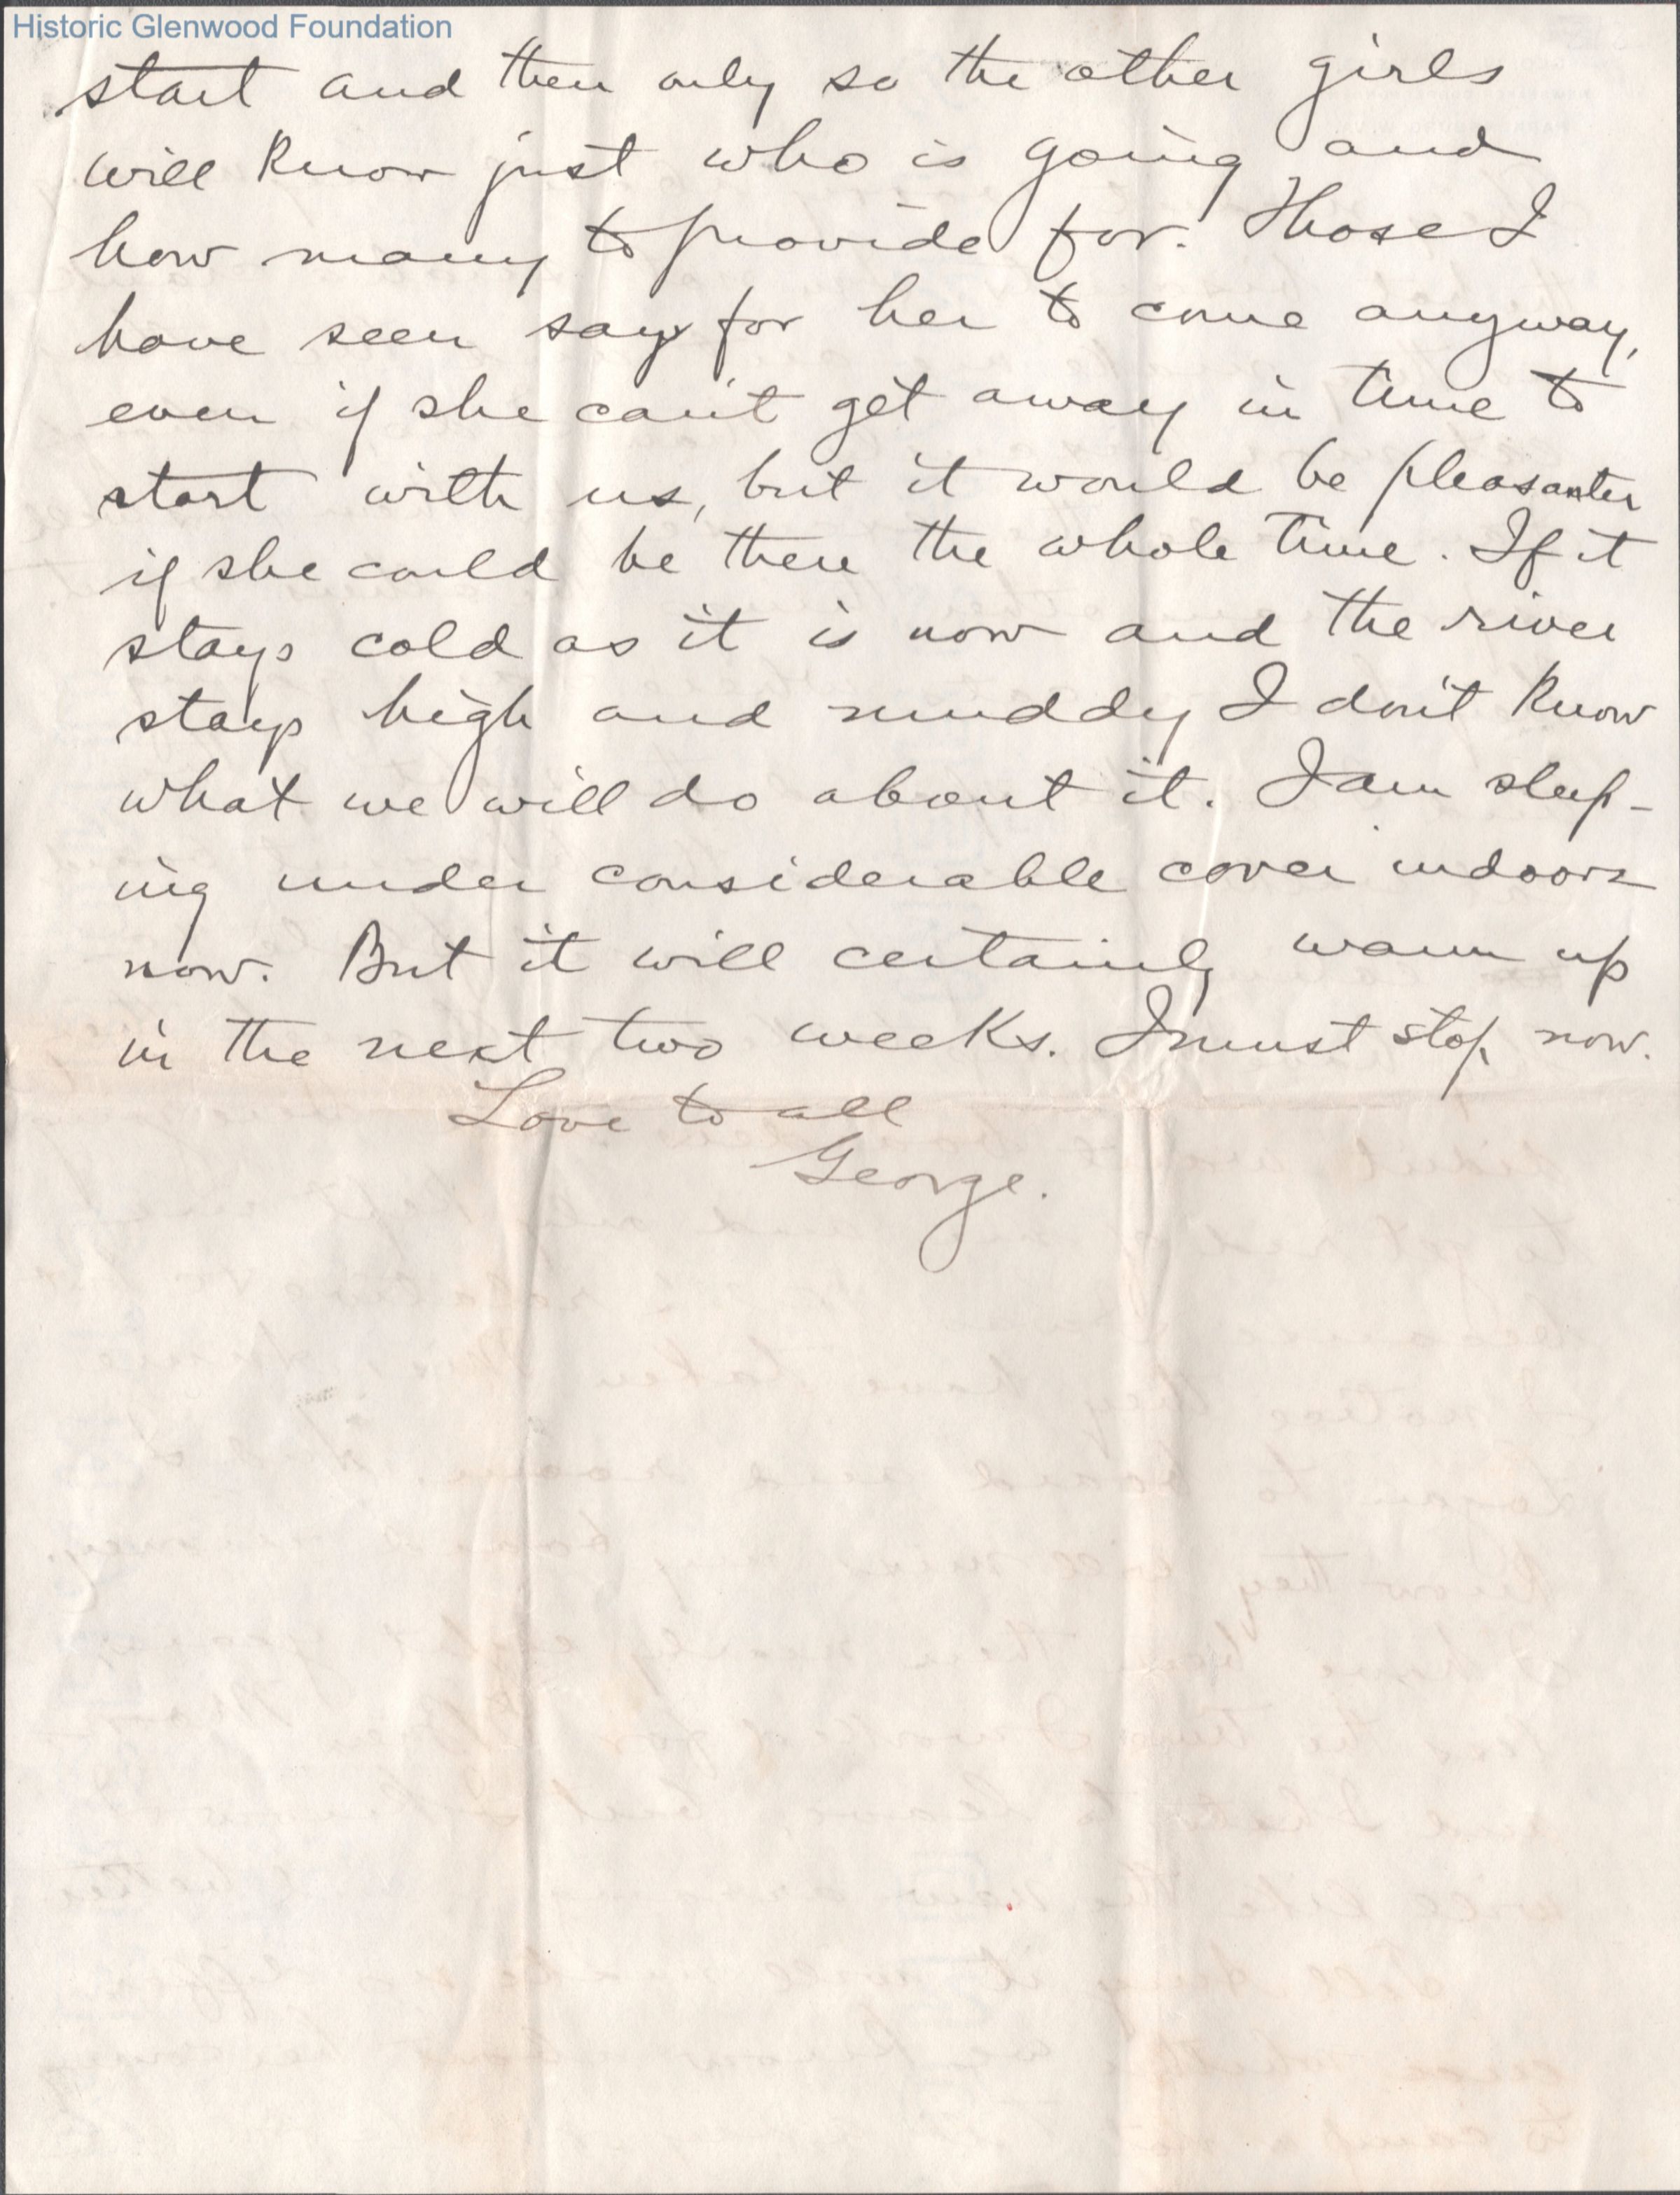 Historic Glenwood Foundation
start and then only so the other girls
will know just who is going and
how many to provide for. Those I
have seen say for her to come anyway,
even if she can't get away in time to
start with us, but it would be pleasanter
if she could be there the whole time. If it
stays cold as it is now and the river
stays high and muddy I don't know
what we will do about it. I am sleep-
ing under considerable cover indoors
now. But it will certainly warm up
in the next two weeks. I must stop now.
Love to all
George.